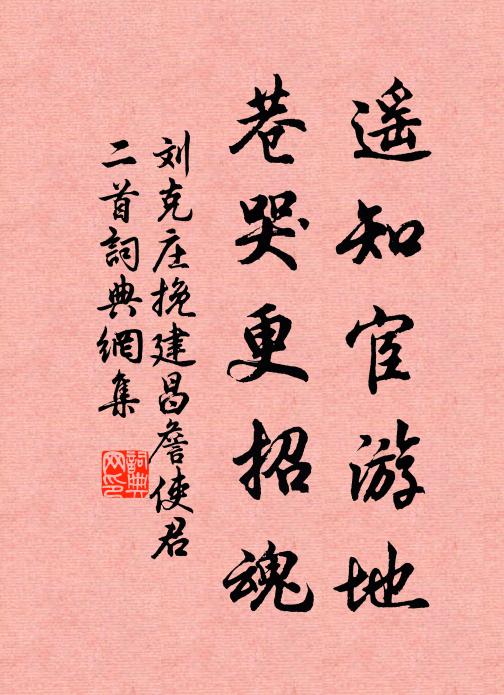 遥知宦游地
巷哭更招魂
刘克庄挽建昌詹使君
二首詞典網集
詞典網印